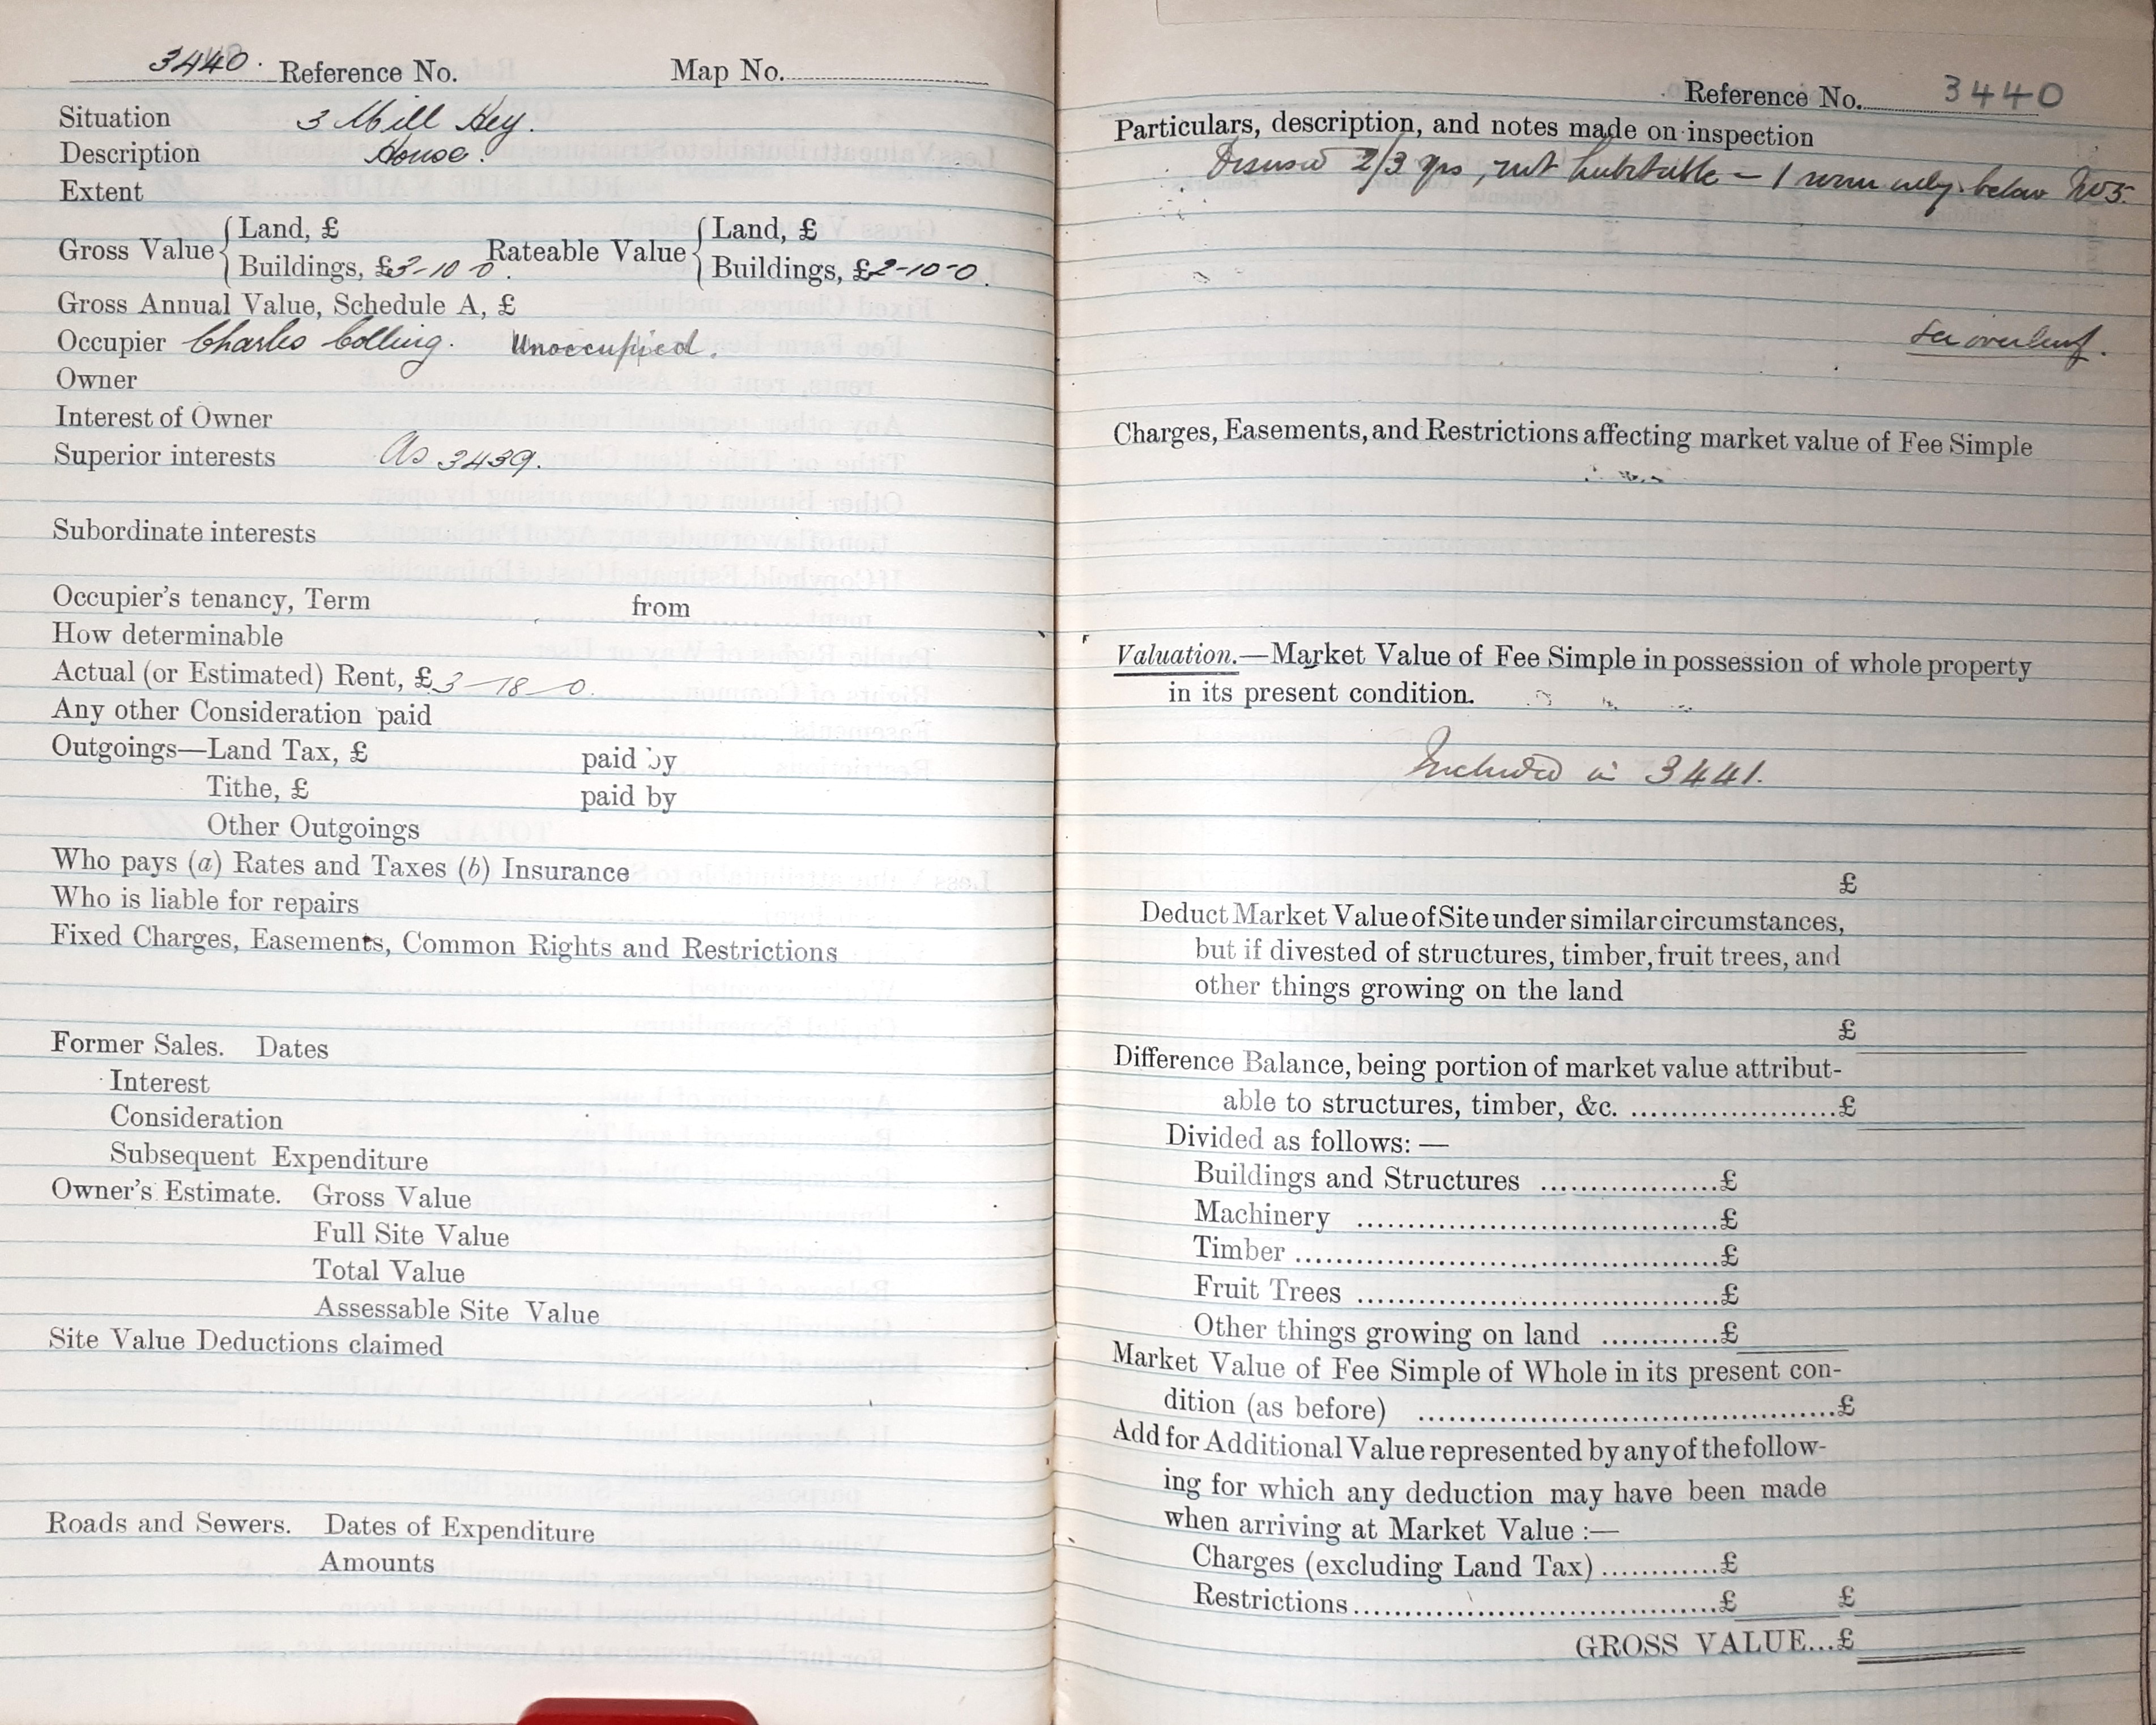 3440. Reference No. Map No.
Situation 3 Mill Hey.
Description House.
Extent
Gross Value { Land, £ Rateable Value { Land, £
Buildings, £3-10 0. Buildings, £2-10-0.
Gross Annual Value, Schedule A, £
Occupier Charles Colling. Unoccupied.
Owner
Interest of Owner
Superior interests As 3439.
Subordinate interests
Occupier's tenancy, Term from
How determinable
Actual (or Estimated) Rent, £3-18-0.
Any other Consideration paid
Outgoings—Land Tax, £ paid by
Tithe, £ paid by
Other Outgoings
Who pays (a) Rates and Taxes (b) Insurance
Who is liable for repairs
Fixed Charges, Easements, Common Rights and Restrictions
Former Sales. Dates
Interest
Consideration
Subsequent Expenditure
Owner's Estimate. Gross Value
Full Site Value
Total Value
Assessable Site Value
Site Value Deductions claimed
Roads and Sewers. Dates of Expenditure
Amounts
Reference No. 3440
Particulars, description, and notes made on inspection
Disused 2/3 yrs, not habitable – 1 room only below No 5.
See overleaf.
Charges, Easements, and Restrictions affecting market value of Fee Simple
Valuation.—Market Value of Fee Simple in possession of whole property
in its present condition.
Included in 3441.
£
Deduct Market Value of Site under similar circumstances,
but if divested of structures, timber, fruit trees, and
other things growing on the land
£
Difference Balance, being portion of market value attribut-
able to structures, timber, &c. ......................£
Divided as follows: —
Buildings and Structures ...................£
Machinery ......................................£
Timber .............................................£
Fruit Trees ......................................£
Other things growing on land ............£
Market Value of Fee Simple of Whole in its present con-
dition (as before) ............................................£
Add for Additional Value represented by any of the follow-
ing for which any deduction may have been made
when arriving at Market Value :—
Charges (excluding Land Tax) ............£
Restrictions......................................£ £
GROSS VALUE...£